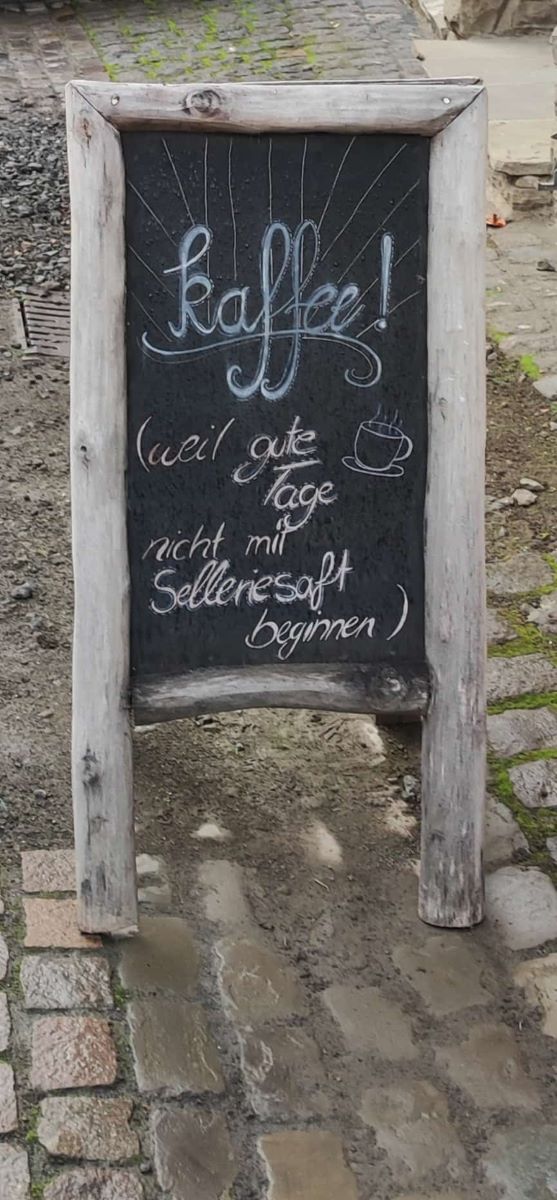 kaffee!
(weil gute
Tage
nicht mit
Selleriesaft
beginnen)